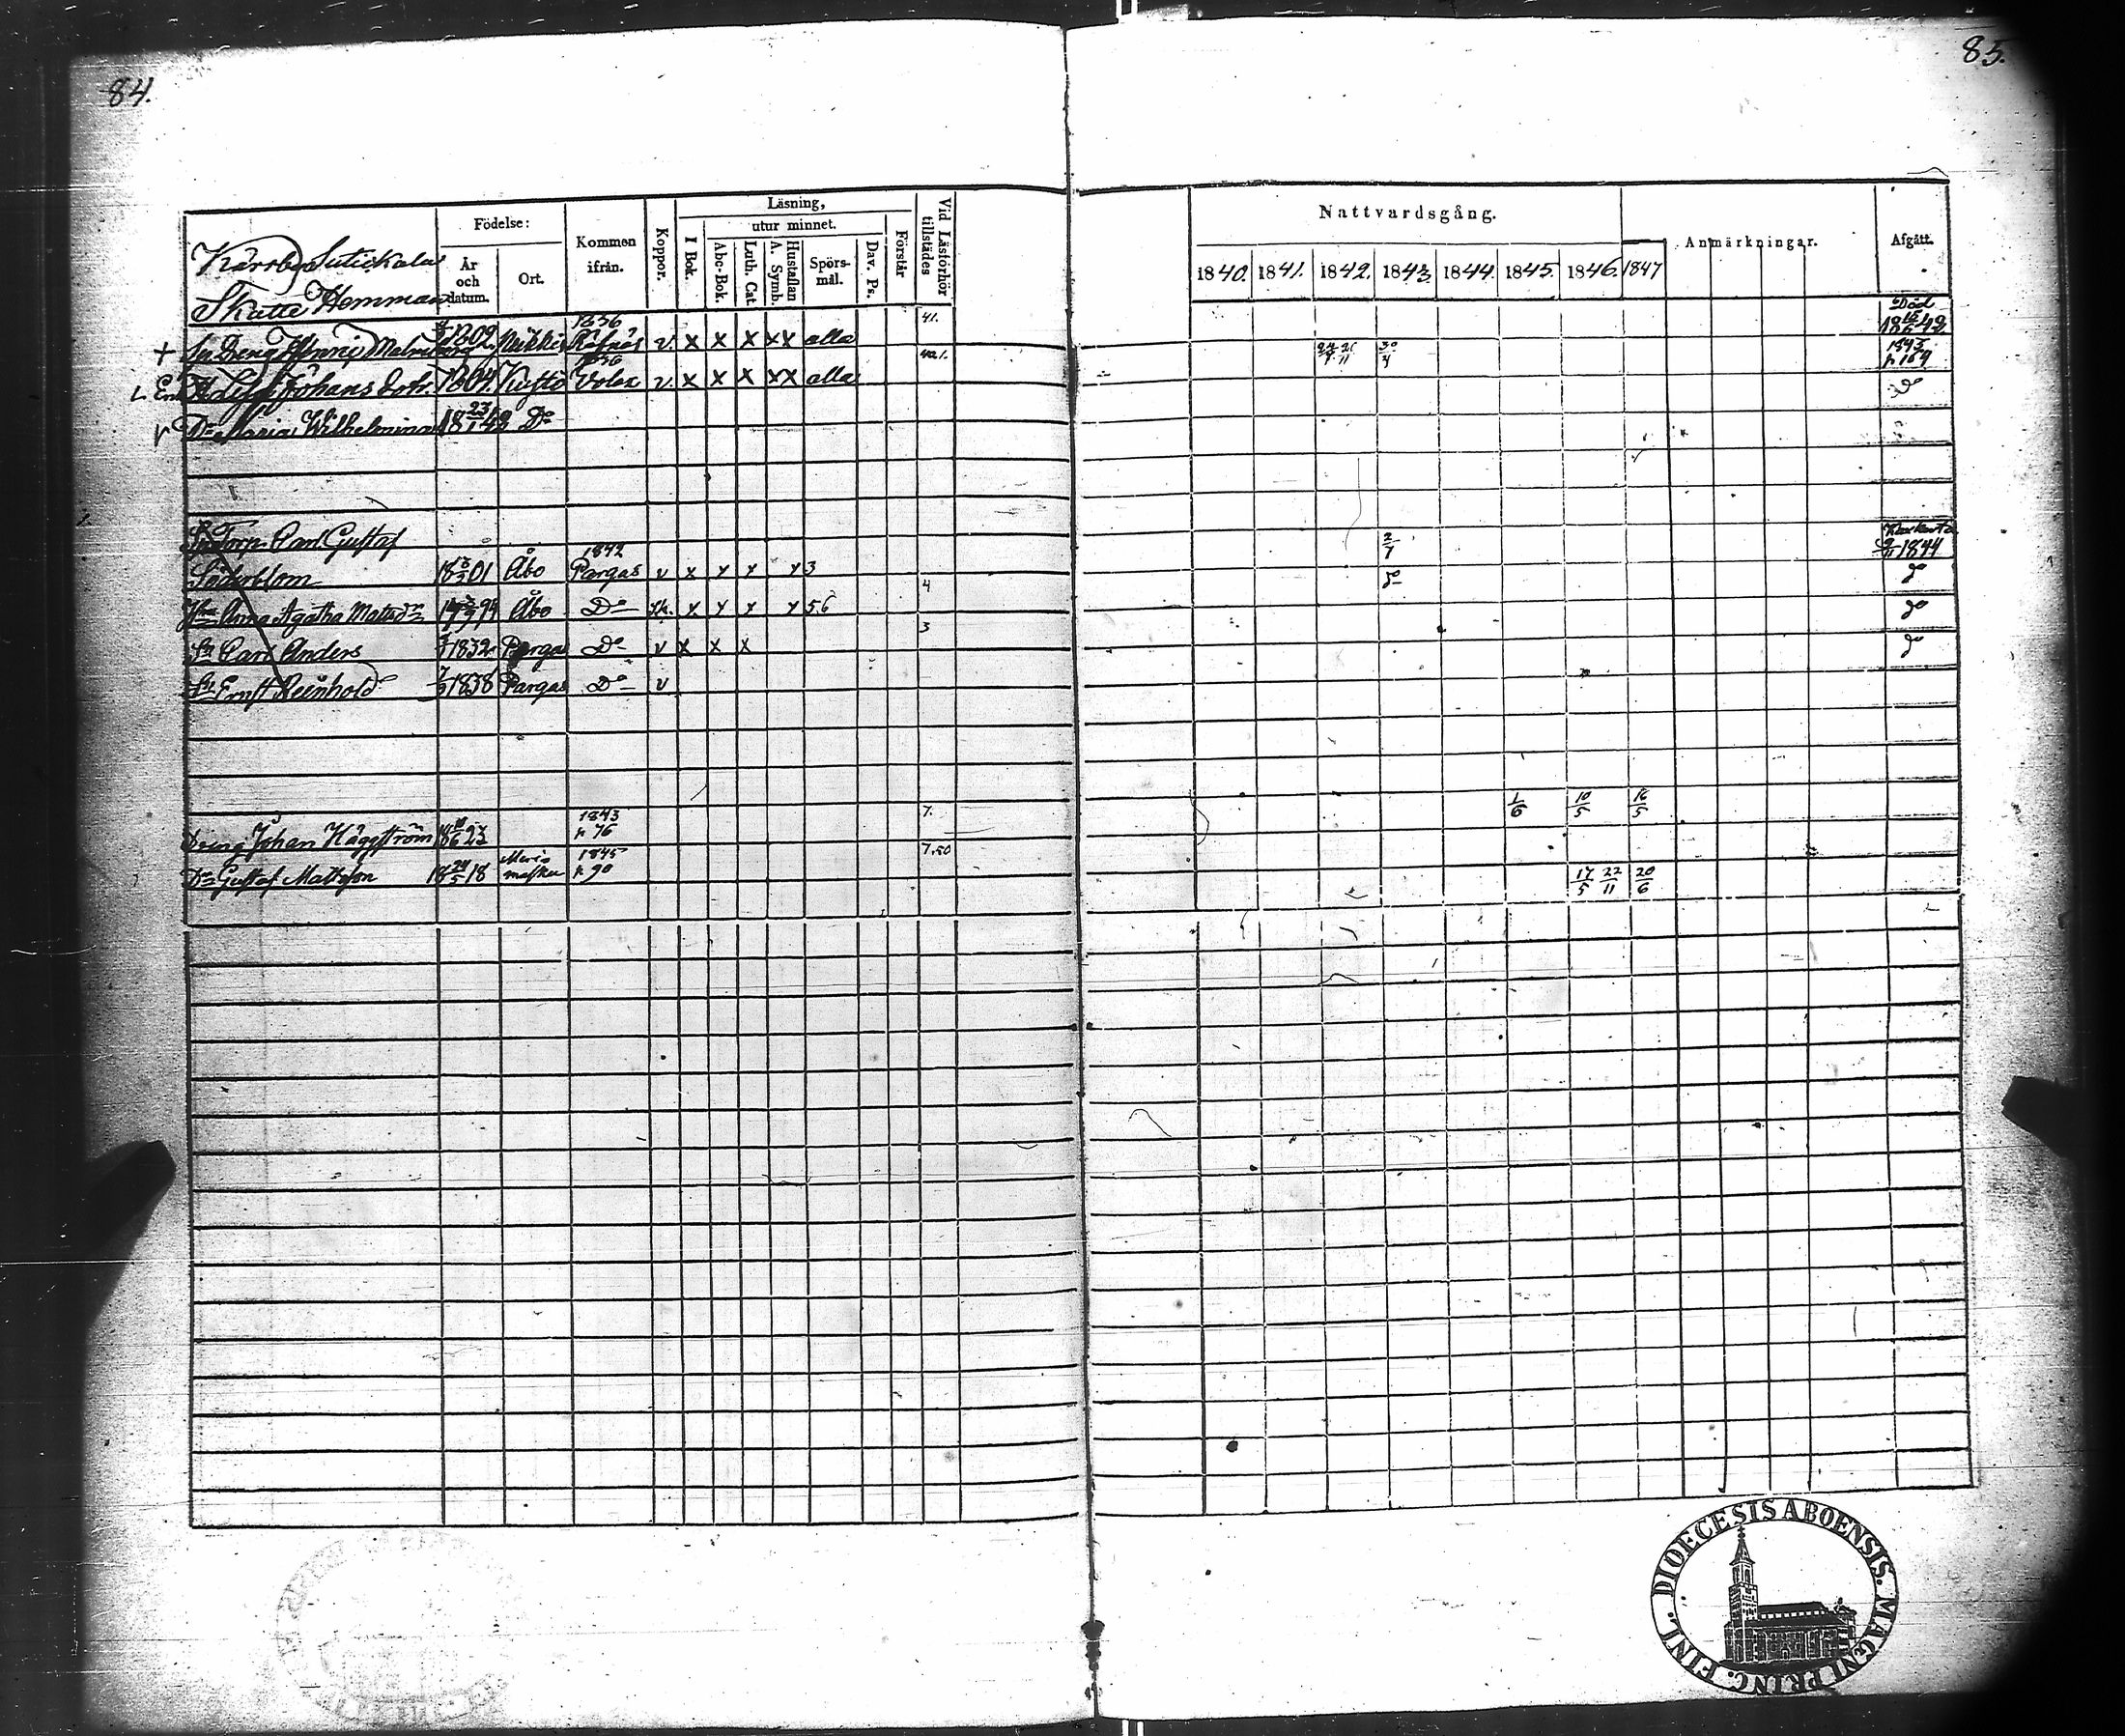 84.
85.
Kärrby Sutickala
Skatte Hemman
Födelse:
År och datum.
Ort.
Kommen ifrån.
Koppor.
Läsning,
I Bok.
utur minnet.
Abc-Bok.
Luth. Cat.
A. Symb.
Hustaflan
Spörsmål.
Dav. Ps.
Förstår
Vid Läsförhör tillstädes
Nattvardsgång.
1840. 1841. 1842. 1843. 1844. 1845. 1846. 1847
Anmärkningar.
Afgått.
+ Dreng Henric Malmberg 1802 1836 v x x x xx alla 41. 30/4 Död 18 42
Johans dotr. Kustö 1836 v x x x xx alla 1843 p 189
Dr Maria Wilhelmina 18 23/1 42 Do Do
Torp. Carl Gustaf 2/7
Söderblom 18 01 Åbo 1842 Pargas v x x x x 3 do 1844
Hu Anna Agatha Matsdr 17 94 Åbo Do x x x x 5.6 4 do
Sn Carl Anders 1832 Pargas Do v x x x 3 do
Sn Ernst Reinhold 1838 Pargas Do v do
Dreng Johan Häggström 18 23 1843 p 76 7. 1/6 10/5 16/5
Do Gustaf Matsson 18 24/5 18 Merimasku 1845 p. 90 7.50 17/5 22/11 20/6
DIOECESIS ABOENSIS. MAGNI PRINC. FINL.